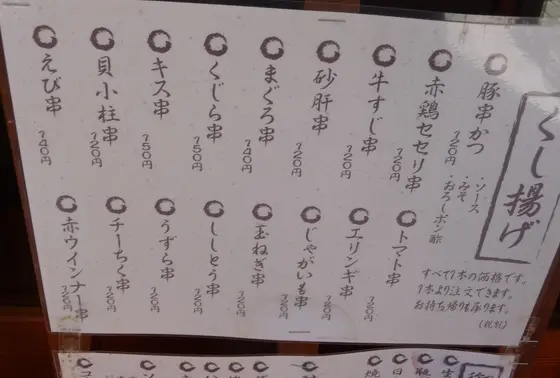 くし揚げ
豚串かつ 120円
・ソース
・みそ
・おろしポン酢
赤鶏セセリ串 120円
牛すじ串 120円
砂肝串 120円
まぐろ串 140円
くじら串 150円
キス串 150円
貝小柱串 120円
えび串 140円
トマト串 120円
エリンギ串 120円
じゃがいも串 120円
玉ねぎ串 120円
ししとう串 120円
うずら串 120円
チーちく串 120円
赤ウインナー串 120円
すべて1本の価格です。
1本より注文できます。
お持ち帰りも承ります。